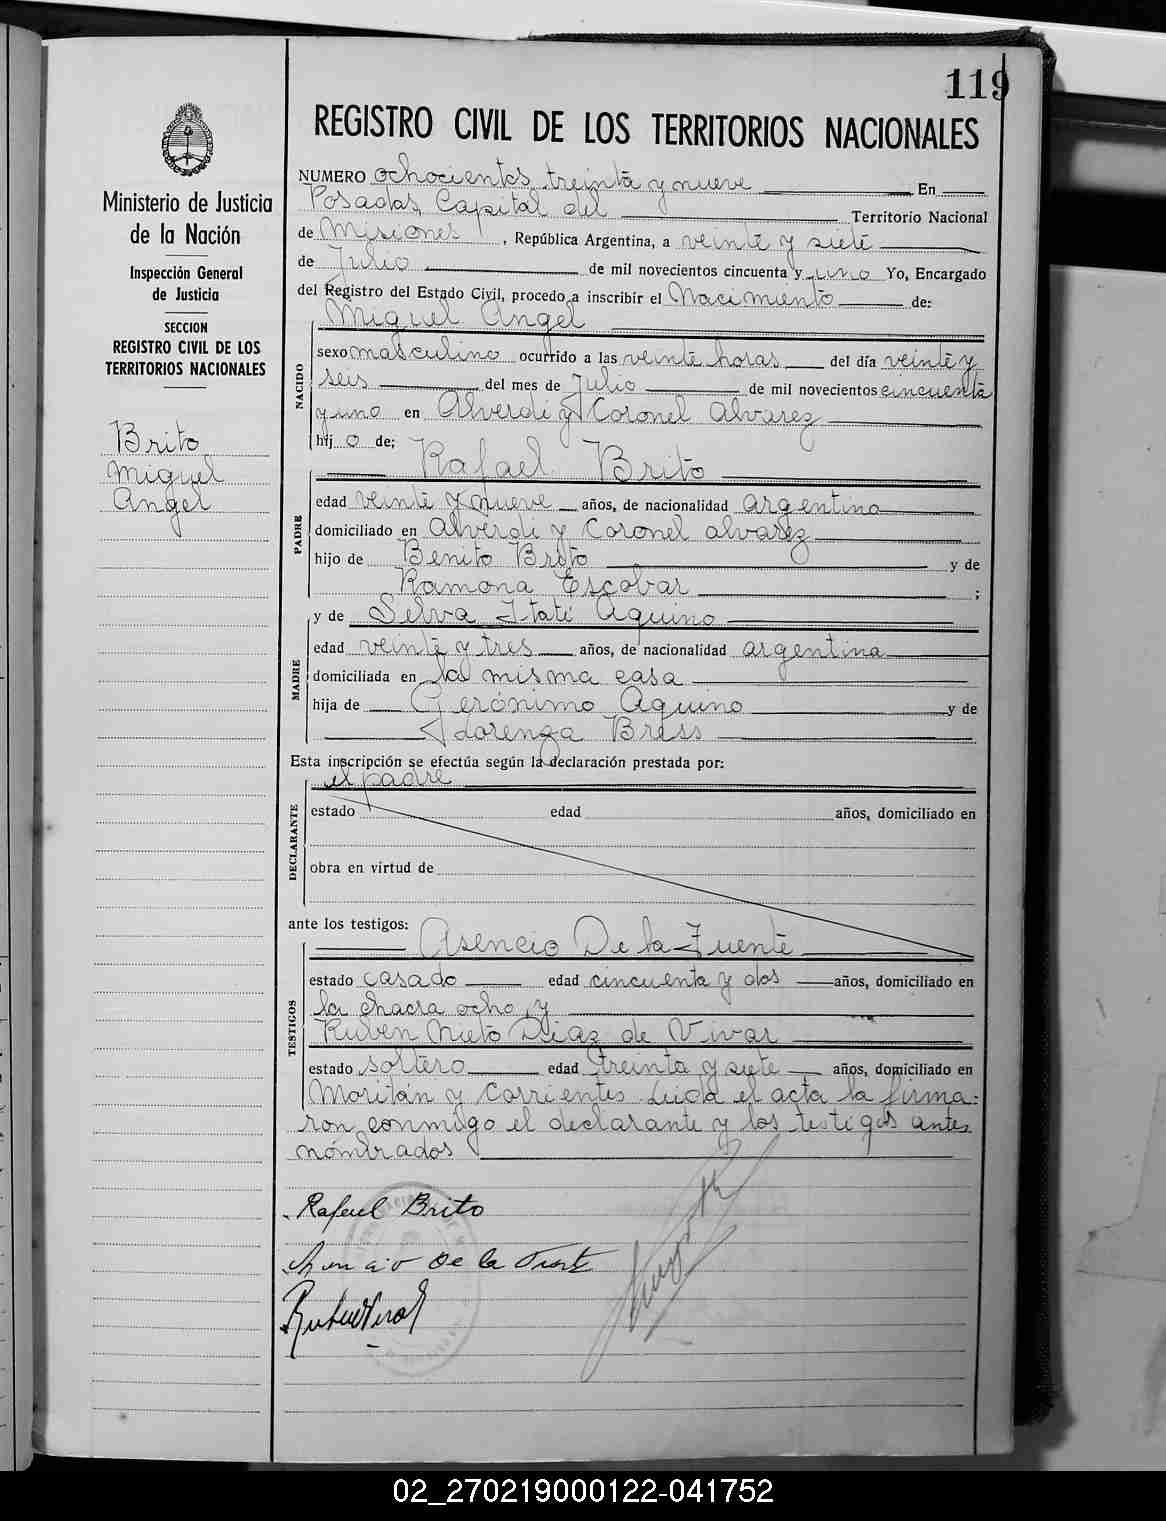 119
REGISTRO CIVIL DE LOS TERRITORIOS NACIONALES
Ministerio de Justicia
de la Nación
Inspección General
de Justicia
SECCION
REGISTRO CIVIL DE LOS
TERRITORIOS NACIONALES
Brito
Miguel
Angel
NUMERO ochocientos treinta y nueve En
Posadas, Capital del Territorio Nacional
de Misiones, República Argentina, a veinte y siete
de Julio de mil novecientos cincuenta y uno Yo, Encargado
del Registro del Estado Civil, procedo a inscribir el Nacimiento de:
Miguel Angel
NACIDO
sexo masculino ocurrido a las veinte horas del día veinte y
seis del mes de Julio de mil novecientos cincuenta
y uno en Alverdi y Coronel Alvarez
hij o de;
Rafael Brito
PADRE
edad veinte y nueve años, de nacionalidad argentina
domiciliado en Alverdi y Coronel alvarez
hijo de Benito Brito y de
Ramona Escobar ;
y de Selva Itatí Aquino
MADRE
edad veinte y tres años, de nacionalidad argentina
domiciliada en la misma casa
hija de Gerónimo Aquino y de
Bress
Esta inscripción se efectúa según la declaración prestada por:
el padre
DECLARANTE
estado edad años, domiciliado en
obra en virtud de
ante los testigos:
Asencio De la Fuente
TESTIGOS
estado casado edad cincuenta y dos años, domiciliado en
la chacra ocho y
Ruben Nieto Diaz de Vivar
estado soltero edad treinta y siete años, domiciliado en
Moritán y Corrientes. Leida el acta la firma-
ron conmigo el declarante y los testigos antes
nómbrados
Rafael Brito
De la
02_270219000122-041752